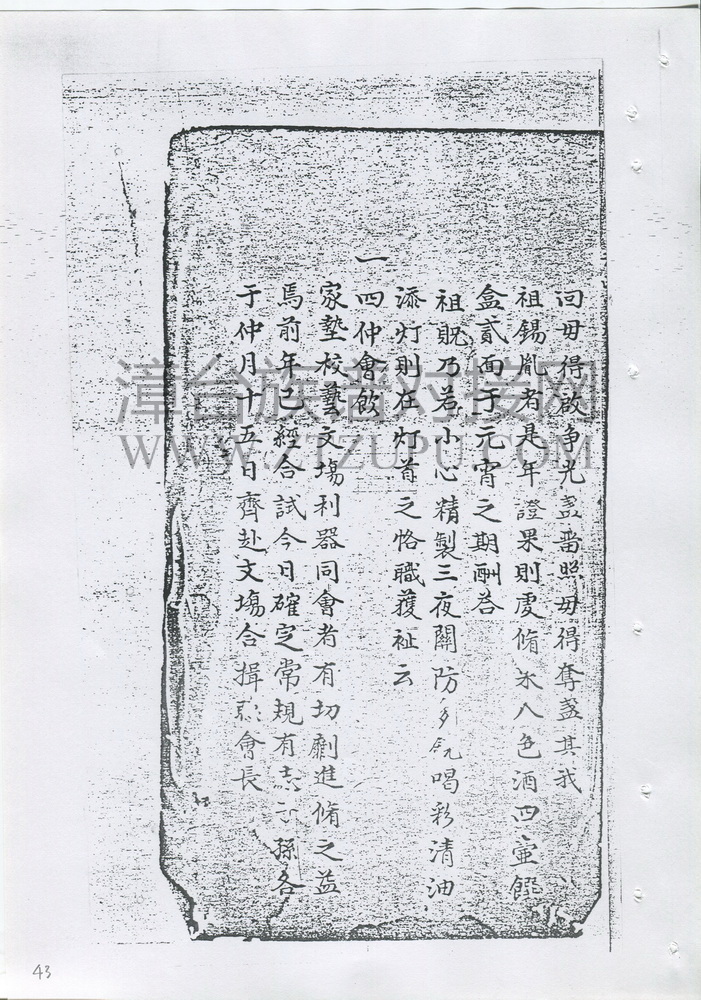 回毋得啟争光盞啚照毋得奪盞其我
祖錫胤者是年證果則虔脩米八色酒四壷饌
盒貳面于元宵之期酬荅
祖貺乃若小心精製三夜關防唱彩清油
添灯則在灯首之恪職獲祉云
一四仲會飲
家塾校藝文塲利器同會者有切劘進脩之益
焉前年已經合試今日確定常規有志子孫各
于仲月十五日齊赴文塲合揖會長
漳台族谱对接网
WWW.ZTZUPU.COM
43